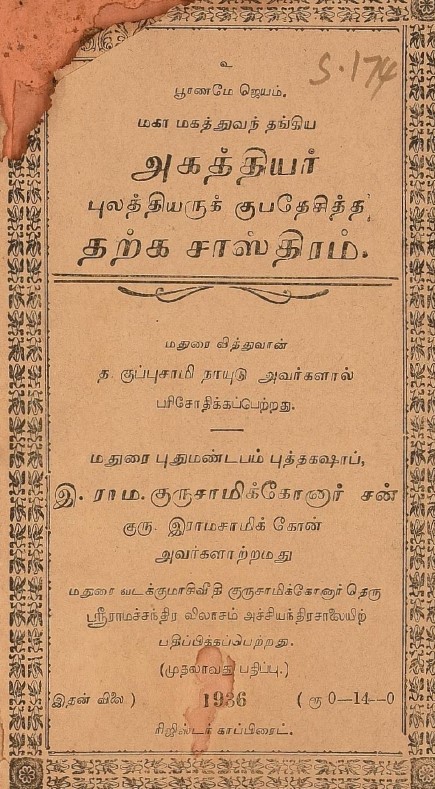 உ
S.174
பூரணமே ஜெயம்.
மகா மகத்துவந் தங்கிய
அகத்தியர்
புலத்தியருக் குபதேசித்த
தற்க சாஸ்திரம்.
மதுரை வித்துவான்
த. குப்புசாமி நாயுடு அவர்களால்
பரிசோதிக்கப்பெற்றது.
மதுரை புதுமண்டபம் புத்தகஷாப்,
இ. ராம. குருசாமிக்கோனார் சன்
குரு. இராமசாமிக் கோன்
அவர்களாற்றமது
மதுரை வடக்குமாசிவீதி குருசாமிக்கோனார் தெரு
ஸ்ரீராமச்சந்திர விலாசம் அச்சியந்திரசாலையிற்
பதிப்பிக்கப்பெற்றது.
(முதலாவது பதிப்பு.)
இதன் விலை ) 1936 ( ரூ 0—14—0
ரிஜிஸ்டர் காப்பிரைட்.